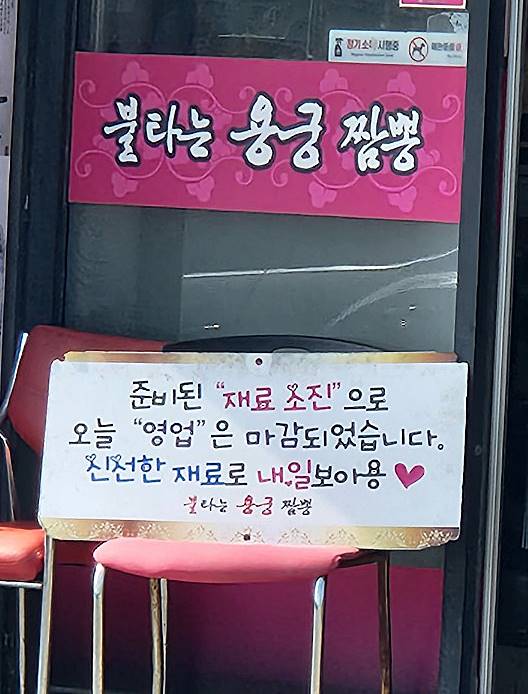 정기소독 시행중
불타는 용궁 짬뽕
준비된 "재료 소진"으로
오늘 "영업"은 마감되었습니다.
신선한 재료로 내일보아용
불타는 용궁 짬뽕